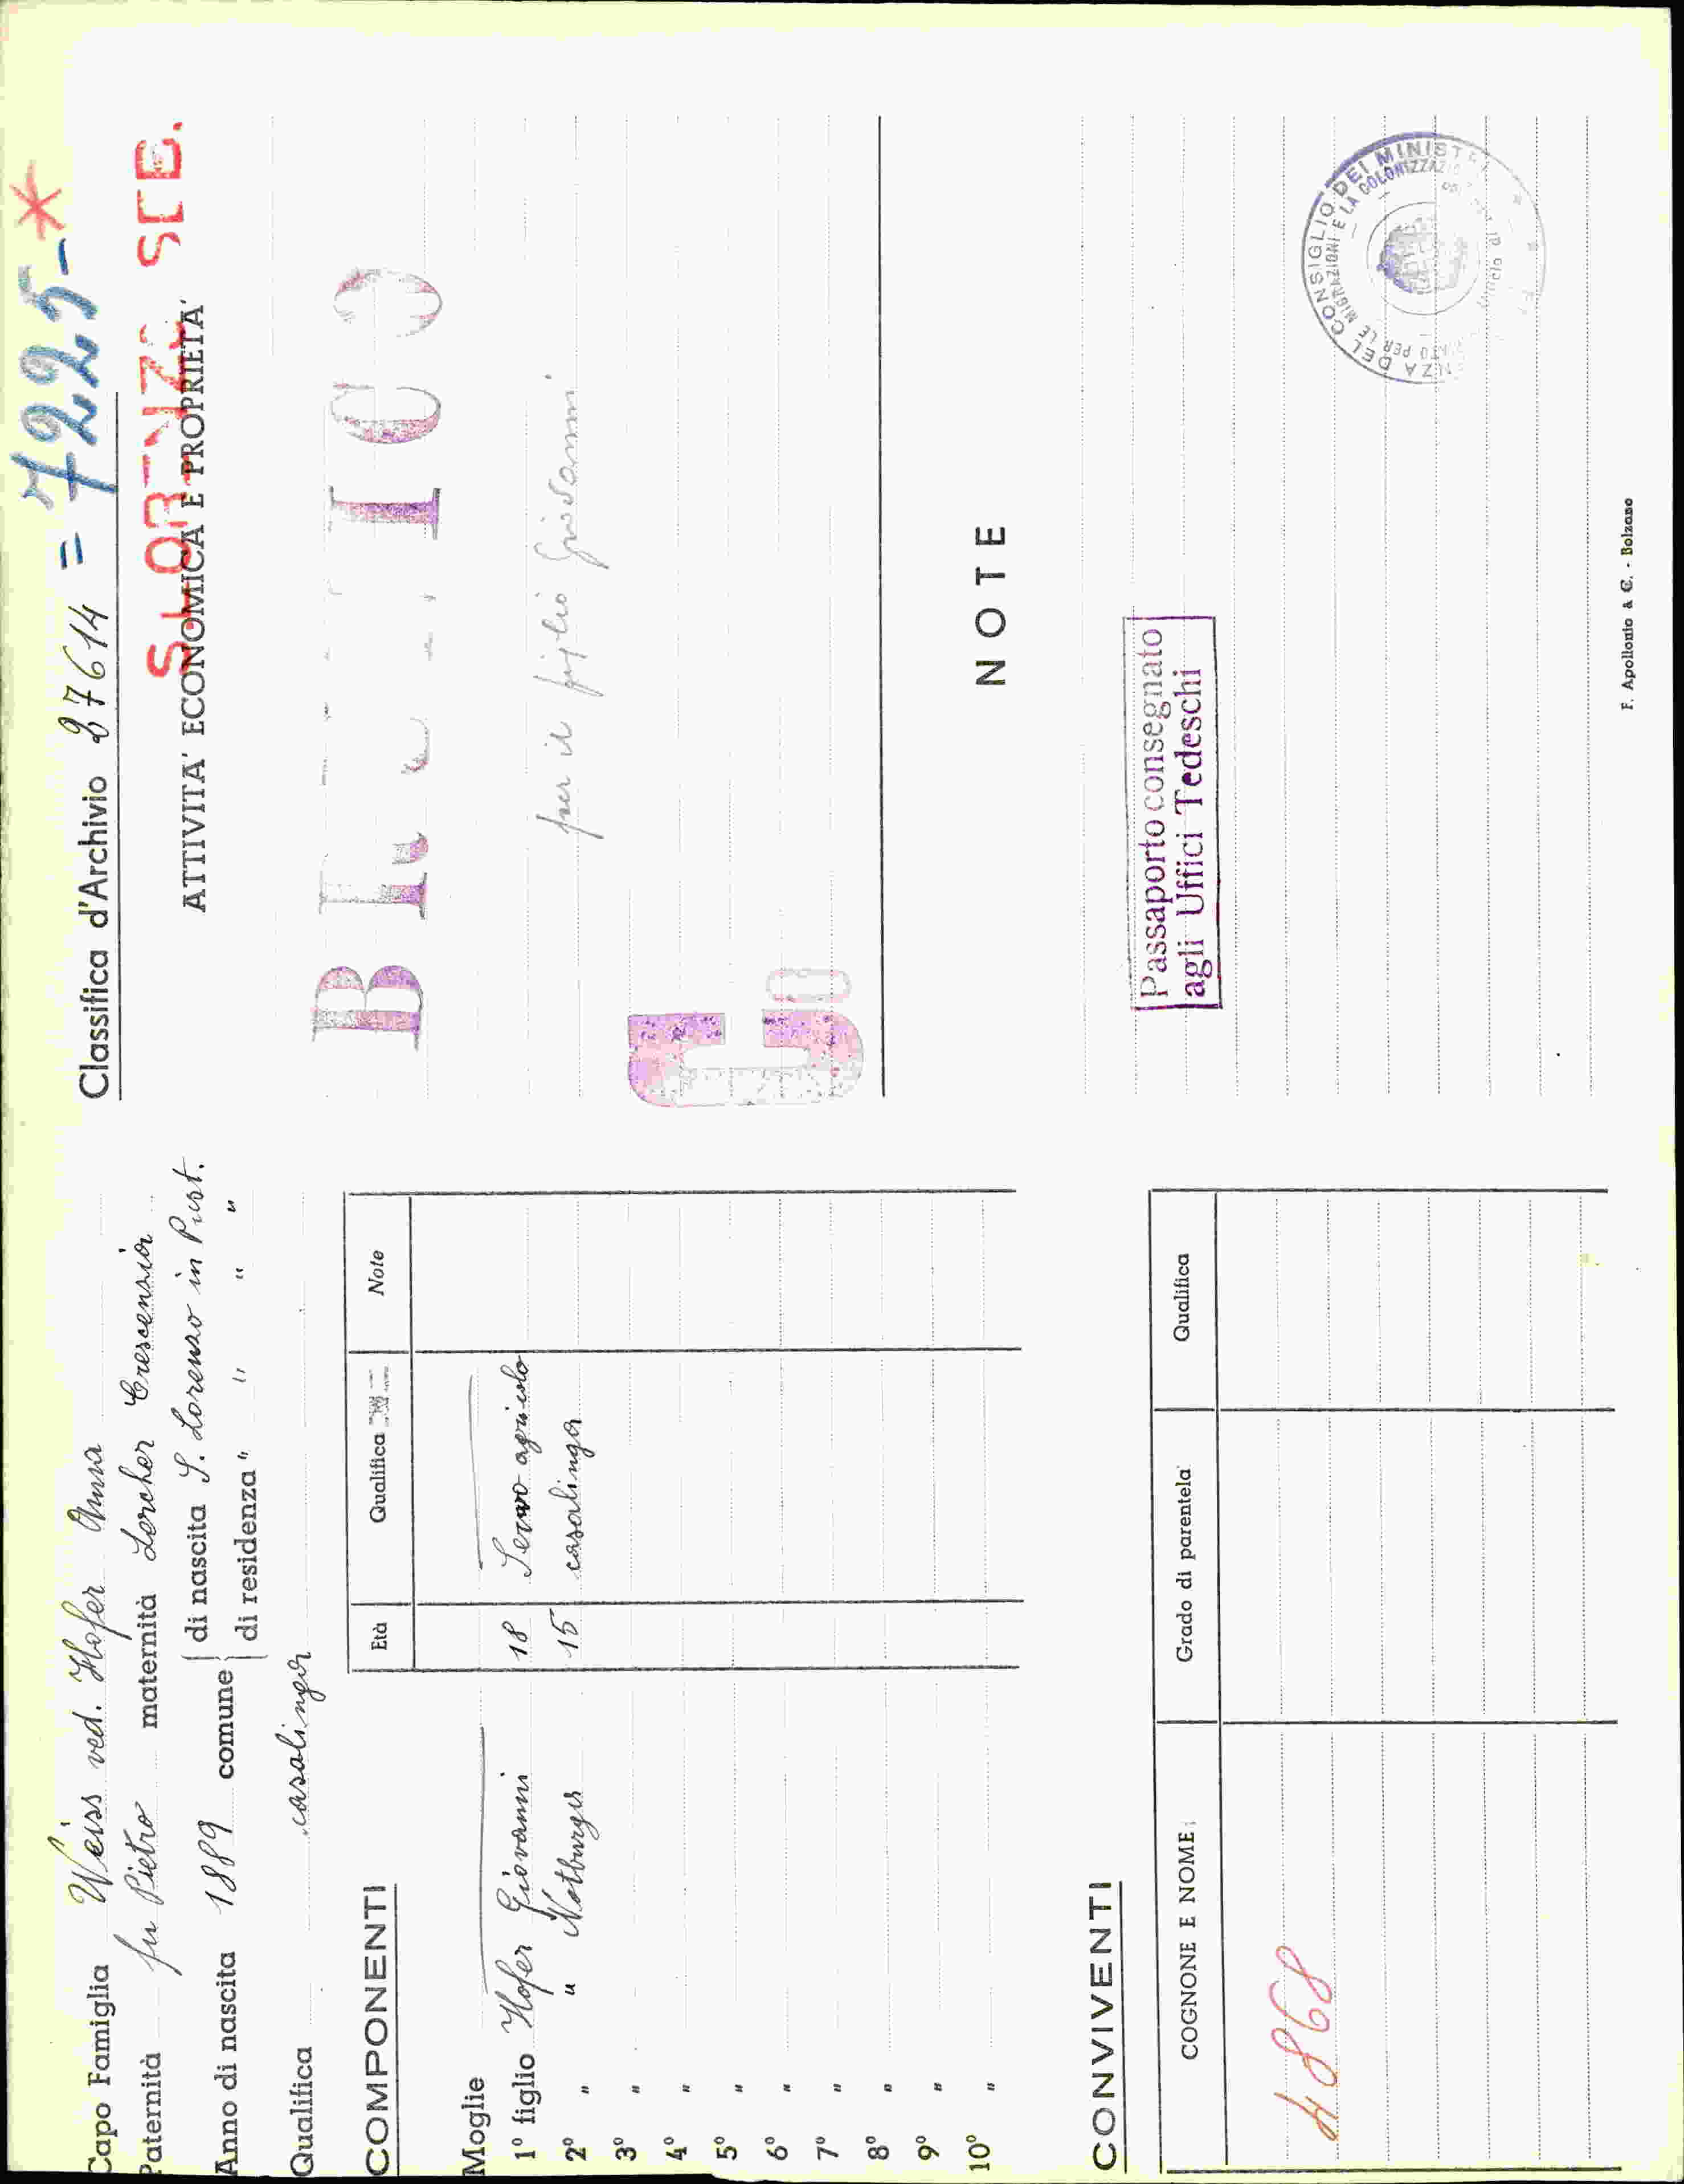 Capo Famiglia Weiss ved. Hofer Anna
Paternità fu Pietro maternità Lercher Crescenzia
Anno di nascita 1889 comune di nascita S. Lorenzo in Pust.
di residenza " " " "
Qualifica casalinga
COMPONENTI
Età Qualifica Note
Moglie
1° figlio Hofer Giovanni 18 Servo agricolo
2° " " Notburga 15 casalinga
3° "
4° "
5° "
6° "
7° "
8° "
9° "
10° "
CONVIVENTI
COGNONE E NOME Grado di parentela Qualifica
4868
Classifica d'Archivio 27614 = 7225-*
S. LORENZO SEB.
ATTIVITA' ECONOMICA E PROPRIETA'
per il figlio Giovanni
NOTE
Passaporto consegnato
agli Uffici Tedeschi
DEL CONSIGLIO DEI MINISTRI
PER LE MIGRAZIONI E LA COLONIZZAZIO
F. Apollonio & C. - Bolzano